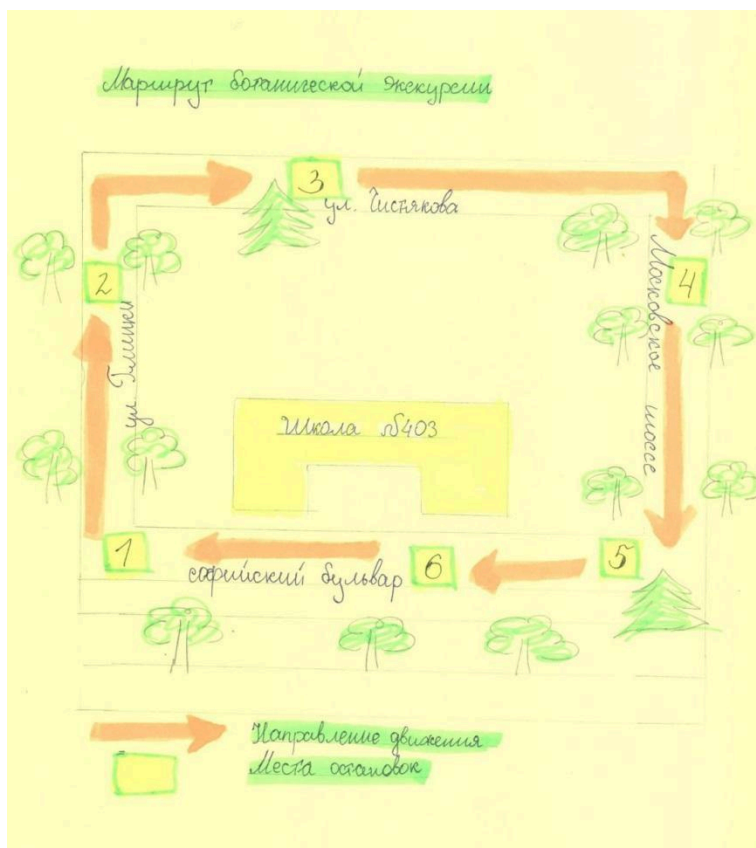 Маршрут ботанической экскурсии
3
ул. Чистякова
2
4
ул. Глинки
Московское шоссе
Школа №403
1
6
5
софийский бульвар
Направление движения
Места остановок